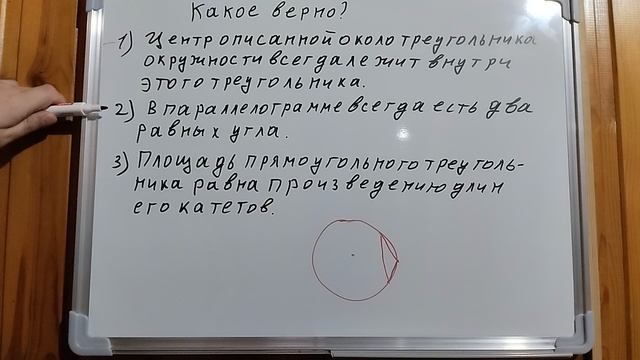 Какое верно?
1) Центр описанной около треугольника
окружности всегда лежит внутри
этого треугольника.
2) В параллелограмме всегда есть два
равных угла.
3) Площадь прямоугольного треуголь-
ника равна произведению длин
его катетов.